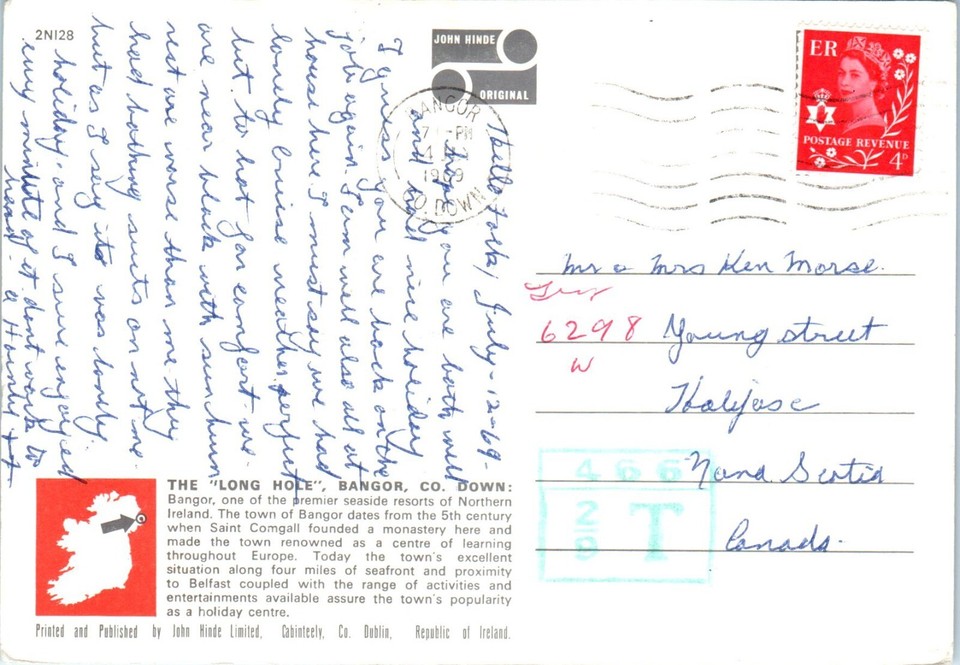 2NI28
JOHN HINDE
ORIGINAL
BANGOR
7 -PM
1969
CO. DOWN
ER
POSTAGE REVENUE
4D
Hello Folk, July-12-69-
I hope you are both well
and had nice holiday
I guess you are back on the
job again. I am well also all at
house here. I must say we had
lovely cruise weather perfect
but to hot for comfort. we-
are near black with sunburn
rest are worse than me they
had bathing suits on not me-
but as I say its was lovely
holiday, and I sure enjoyed
minute of it dont work to
Mr & Mrs Ken Morse.
6298 Young street
W
Halifase
Nova Scotia
Canada.
466
2
T
THE "LONG HOLE", BANGOR, CO. DOWN:
Bangor, one of the premier seaside resorts of Northern
Ireland. The town of Bangor dates from the 5th century
when Saint Comgall founded a monastery here and
made the town renowned as a centre of learning
throughout Europe. Today the town's excellent
situation along four miles of seafront and proximity
to Belfast coupled with the range of activities and
entertainments available assure the town's popularity
as a holiday centre.
Printed and Published by John Hinde Limited, Cabinteely, Co. Dublin, Republic of Ireland.